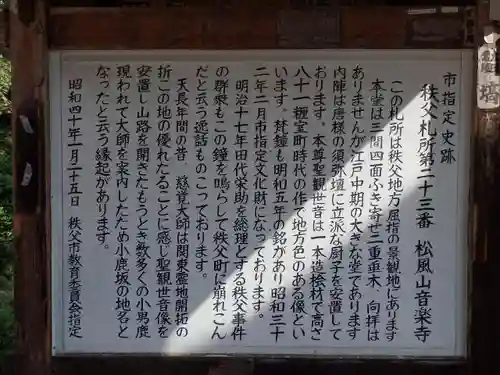 市指定史跡
秩父札所第二十三番 松風山音楽寺
この札所は秩父地方屈指の景観地にあります
本堂は三間四面ふき寄せ二重垂木、向拝は
ありませんが江戸中期の大きな堂であります
内陣は唐様の須弥壇に立派な厨子を安置して
おります。本尊聖観世音は一木造桧材で高さ
八十一糎室町時代の作で地方色のある像とい
います。梵鐘も明和五年の銘があり昭和三十
二年二月市指定文化財になっております。
明治十七年田代栄助を総理とする秩父事件
の群衆もこの鐘を鳴らして秩父町に崩れこん
だと云う逸話ものこっております。
天長年間の昔、慈覚大師は関東霊地開拓の
折この地の優れたることに感じ聖観世音像を
安置し山路を開きたもうとき数多くの小男鹿
現われて大師を案内したため小鹿坂の地名と
なったと云う縁起があります。
昭和四十年一月二十五日 秩父市教育委員会指定